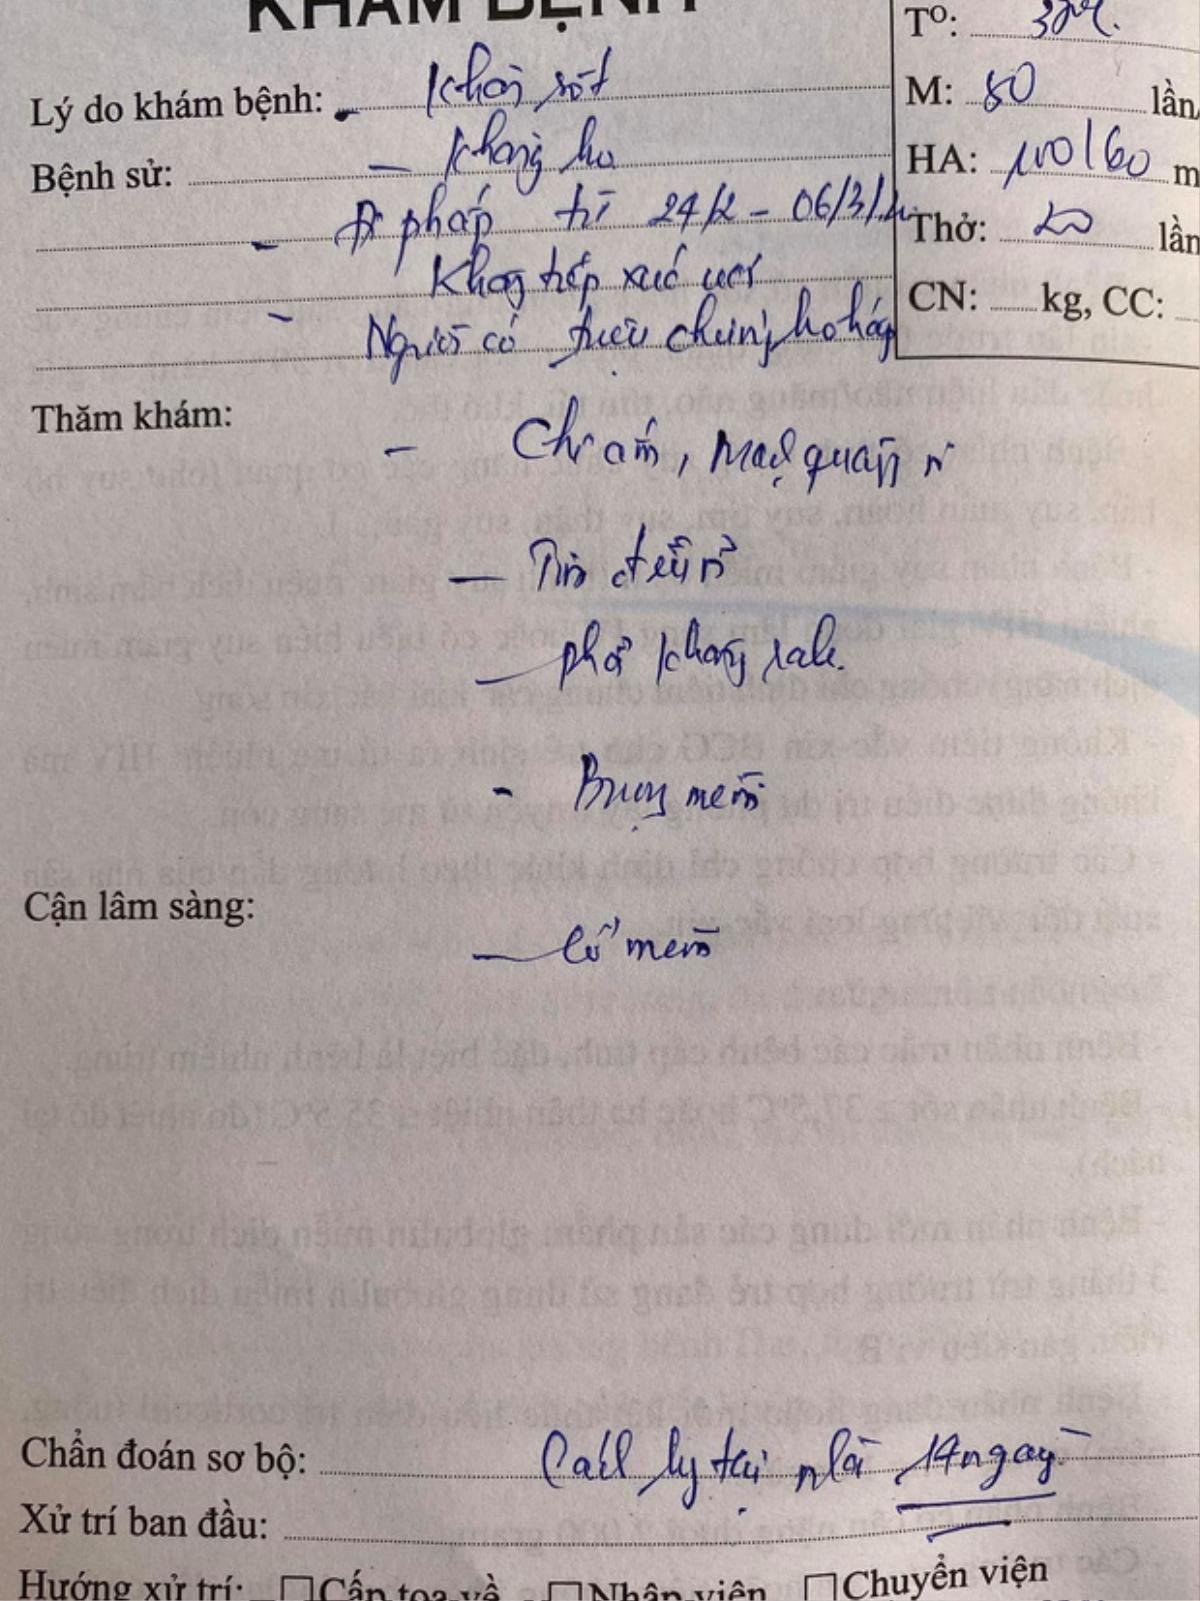 KHÁM BỆNH
Tº:
Lý do khám bệnh: - Không sốt
M: 80 lần
Bệnh sử: - Không ho
HA: 100/60 m
- Ở pháp từ 24/2 - 06/3/
Thở: 20 lần
Không tiếp xúc với
CN: kg, CC:
- Người có triệu chứng ho
Thăm khám:
- Chi ấm, mạch quay rõ
- Tim đều rõ
- phổi không rale.
- Bụng mềm
Cận lâm sàng:
- Cổ mềm
Chẩn đoán sơ bộ: Cách ly tại nhà 14 ngày
Xử trí ban đầu:
Hướng xử trí: Cấp toa về Nhập viện Chuyển viện